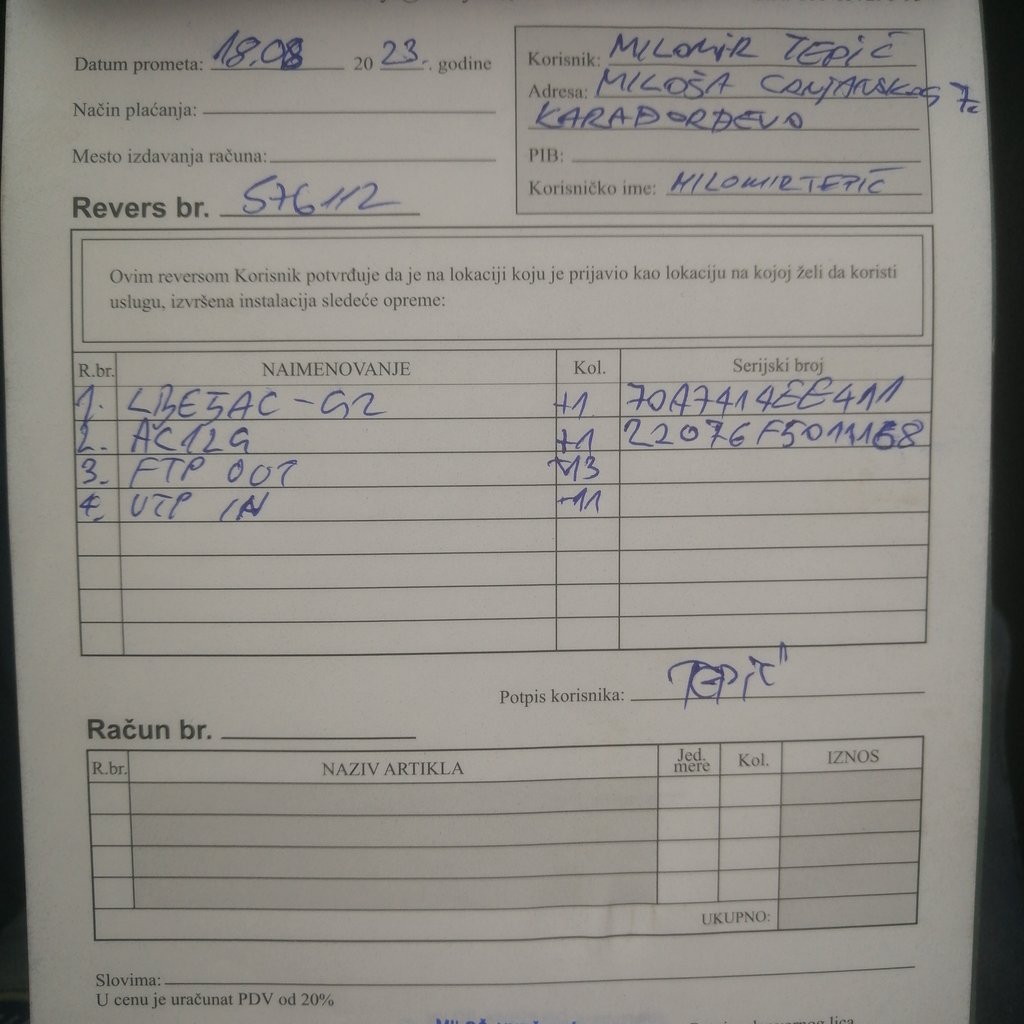 Datum prometa: 18.08 20 23. godine
Način plaćanja:
Mesto izdavanja računa:
Revers br. 576112
Korisnik: MILOMIR TEPIĆ
Adresa: MILOŠA CRNJANSKOG 7c
KARAĐORĐEVO
PIB:
Korisničko ime: MILOMIRTEPIĆ
Ovim reversom Korisnik potvrđuje da je na lokaciji koju je prijavio kao lokaciju na kojoj želi da koristi
uslugu, izvršena instalacija sledeće opreme:
R.br. NAIMENOVANJE Kol. Serijski broj
1. LBE5AC-G2 +1 70A7414EE411
2. AC12G +1 22076F5011168
3. FTP OUT +13
4. UTP IN +11
Potpis korisnika: TEPIĆ
Račun br.
R.br. NAZIV ARTIKLA Jed. mere Kol. IZNOS
UKUPNO:
Slovima:
U cenu je uračunat PDV od 20%